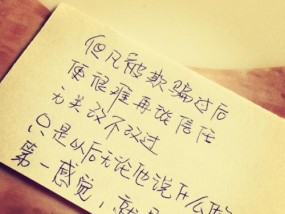 但凡被欺骗过后
便很难再谈信任
无关改不改过
只是从后无论他说什么做
第一感觉，就